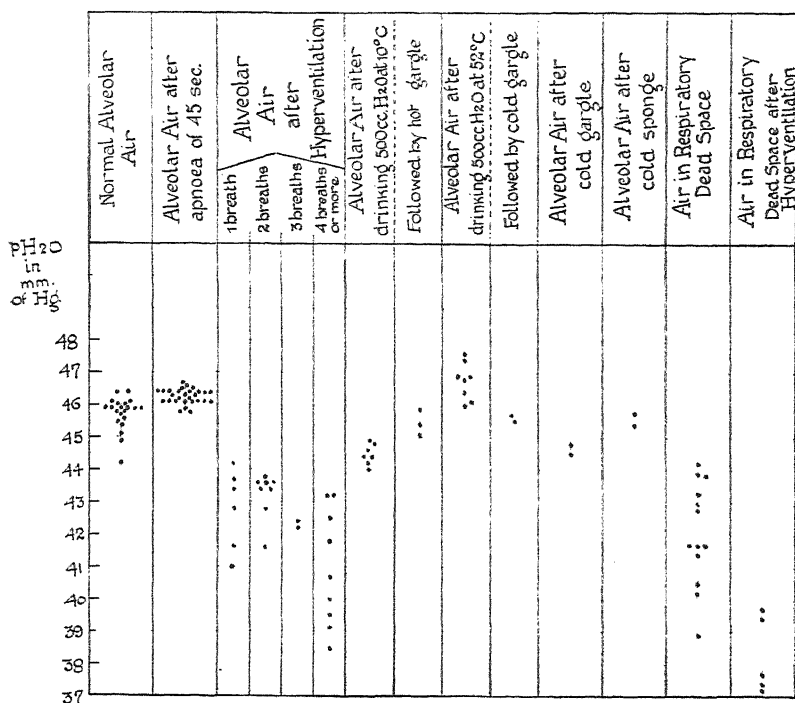 Normal Alveolar
Air
Alveolar Air after
apnoea of 45 sec.
Alveolar
Air
after
Hyperventilation
1 breath
2 breaths
3 breaths
4 breaths
or more.
Alveolar Air after
drinking 500cc.H2O at 10°C
Followed by hot gargle
Alveolar Air after
drinking 500cc.H2O at 52°C
Followed by cold gargle
Alveolar Air after
cold gargle
Alveolar Air after
cold sponge
Air in Respiratory
Dead Space
Air in Respiratory
Dead Space after
Hyperventilation
pH2O
in
mm.
of Hg.
48
47
46
45
44
43
42
41
40
39
38
37